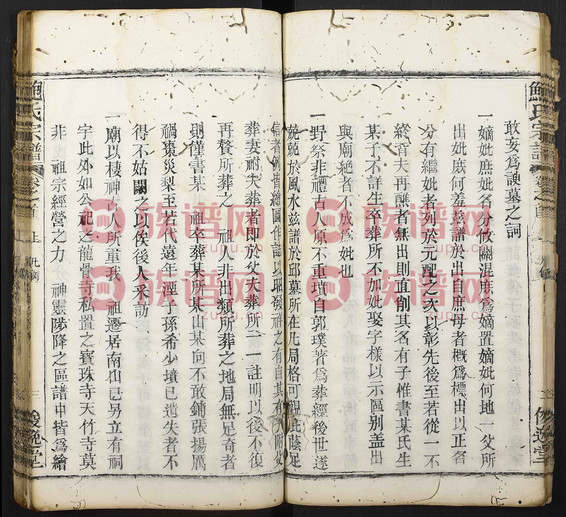 敢亥爲諛墓之詞
一嫡妣庶妣名分攸關混庶爲嫡置嫡妣何地一父所
出妣庶何羞於出自庶母者概爲標出以正名
分有繼妣者列於元配之次以彰先後至若從一不
終者夫再醮者無出則直削其名有子惟書某氏生
某子不詳生卒葬所不加妣娶字樣以示區别盖出
與廟絕者不放爲妣也
一野祭非禮古人原不重墳自郭璞著爲葬經後世遂
於風水兹譜於邱墓所在凡局格可觀
葬妻祔夫葬者即於父夫葬所一一註明以後不復
再贅所葬之祖人非出類所葬之地局無足奇者
則僅書某祖卒葬某所某山某向不敢鋪張揚厲
禍棗災梨至若代遠年湮子孫希少墳已遺失者不
得不姑闕之以俟後人采訪
一廟以棲神所重我祖遷居南山已另立有祠
宇此外如公祀之龍寺私置之寶珠寺天竹寺莫
非祖宗經營之力神靈陟降之區譜中皆爲繪
鮑氏宗譜
卷之首
上
凡例
三
俊逸堂
族谱网